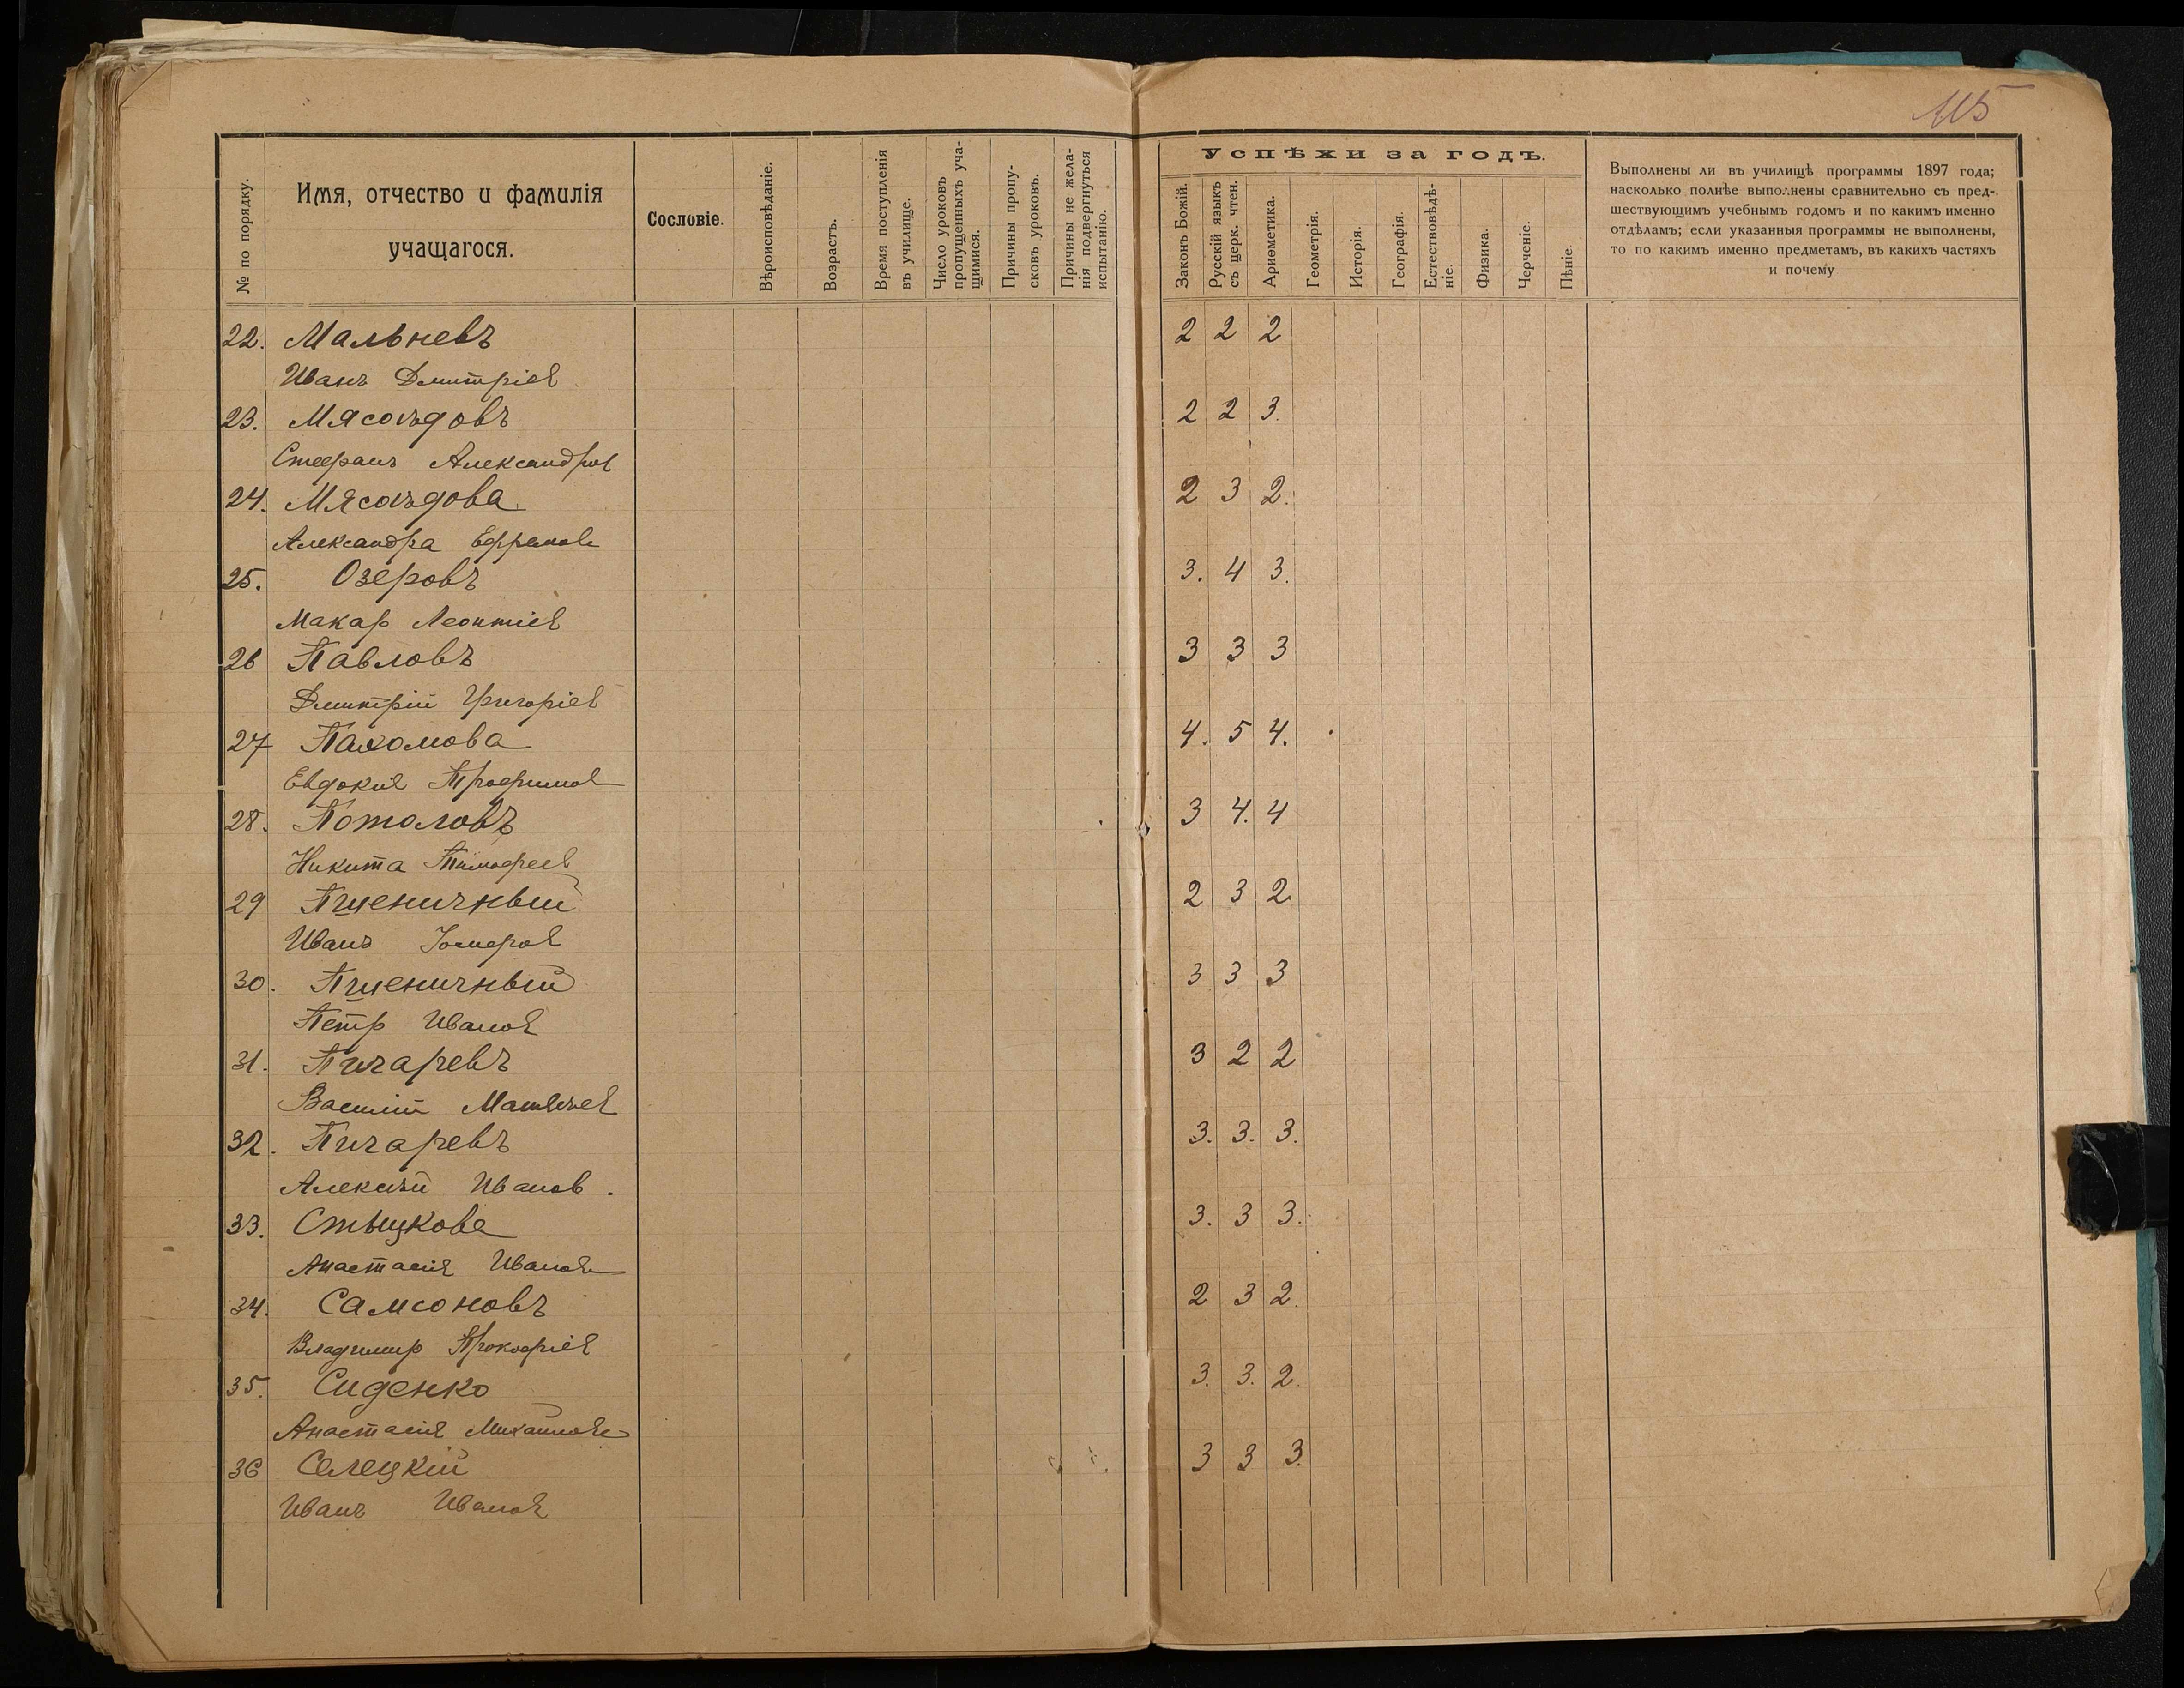 115
№ по порядку.
Имя, отчество и фамилія
учащагося.
Сословіе.
Вѣроисповѣданіе.
Возрастъ.
Время поступленія
въ училище.
Число уроковъ
пропущенныхъ уча-
щимися.
Причины пропу-
сковъ уроковъ.
Причины не жела-
нія подвергнуться
испытанію.
Успѣхи за годъ.
Законъ Божій.
Русскій языкъ
съ церк. чтен.
Ариѳметика.
Геометрія.
Исторія.
Географія.
Естествовѣдѣ-
ніе.
Физика.
Черченіе.
Пѣніе.
Выполнены ли въ училищѣ программы 1897 года;
насколько полнѣе выполнены сравнительно съ пред-
шествующимъ учебнымъ годомъ и по какимъ именно
отдѣламъ; если указанныя программы не выполнены,
то по какимъ именно предметамъ, въ какихъ частяхъ
и почему
22. Мальневъ 2 2 2
Иванъ Дмитріев
23. Мясоѣдовъ 2 2 3.
Стефанъ Александров
24. Мясоѣдова 2 3 2.
Александра Ефремов
25. Озеровъ 3. 4 3.
Макар Леонтіев
26 Павловъ 3 3 3
Дмитрій Григоріев
27 Пахомова 4. 5 4.
Евдокія Трофимов
28. Потоловъ 3 4. 4
Никита Тимофеев
29 Пшеничный 2 3 2
Иванъ
30. Пшеничный 3 3 3
Петр Иванов
31. Пичаревъ 3 2 2
Василій Матвѣев
32. Пичаревъ 3. 3. 3.
Алексѣй Иванов.
33. 3. 3 3.
Анастасія Иванов
34. Самсоновъ 2 3 2.
Владимир Прокофіев
35. Сиденко 3. 3. 2.
Анастасія Михайлов
36 Селецкій 3 3 3.
Иванъ Иванов